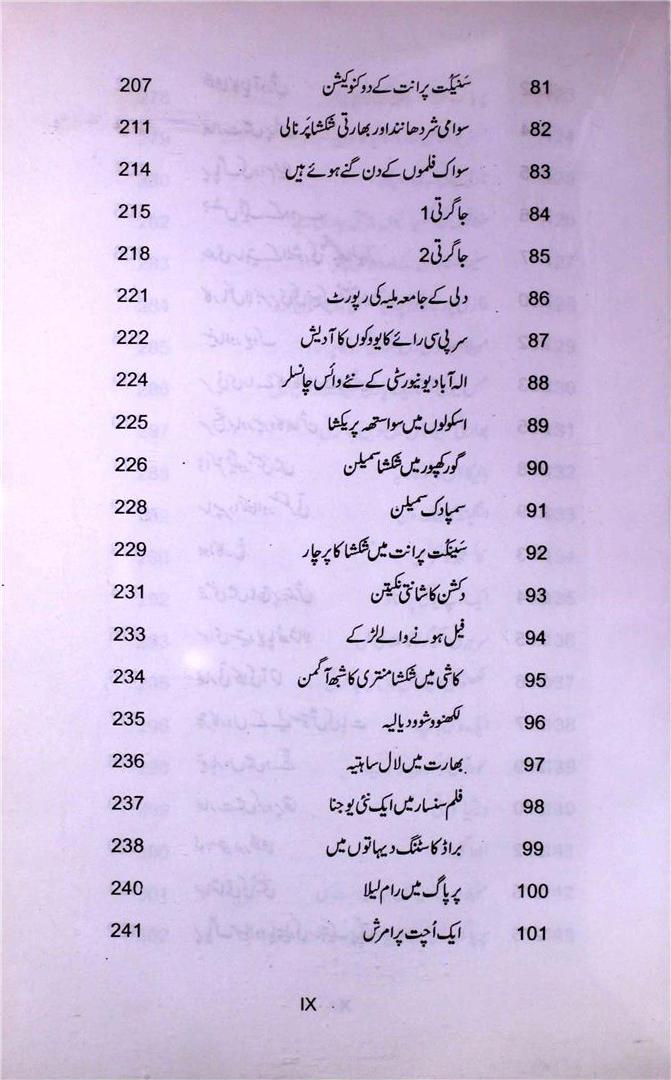 81 سَنیکُت پرانت کے دو کنوکیشن 207
82 سوامی شردھانند اور بھارتی شکشا پَرنالی 211
83 سواک فلموں کے دن گنے ہوئے ہیں 214
84 جاگرتی 1 215
85 جاگرتی 2 218
86 دلی کے جامعہ ملیہ کی رپورٹ 221
87 سر پی سی رائے کا یووکوں کا آدیش 222
88 الہ آباد یونیورسٹی کے نئے وائس چانسلر 224
89 اسکولوں میں سواستھ پریکشا 225
90 گورکھپور میں شکشا سمیلن 226
91 سمپادک سمیلن 228
92 سَینکُت پرانت میں شکشا کا پرچار 229
93 دکشن کا شانتی نکیتن 231
94 فیل ہونے والے لڑکے 233
95 کاشی میں شکشا منتری کا شبھ آگمن 234
96 لکھنو وشوودیالیہ 235
97 بھارت میں لال ساہتیہ 236
98 فلم سنسار میں ایک نئی یوجنا 237
99 براڈ کاسٹنگ دیہاتوں میں 238
100 پریاگ میں رام لیلا 240
101 ایک اُچت پرامرش 241
IX